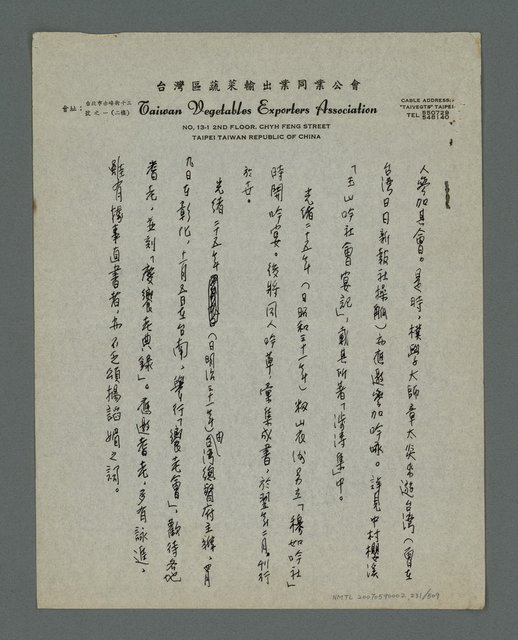 台灣區蔬菜輸出業同業公會
會址：台北市赤峰街十三號之一(二樓)
Taiwan Vegetables Exporters Association
NO, 13-1 2ND FLOOR. CHYH FENG STREET
TAIPEI TAIWAN REPUBLIC OF CHINA
CABLE ADDRESS:
"TAIVEGTS" TAIPEI
TEL 550728
546140
人參加其會。是時，樸學大師章太炎來遊台灣（曾在
台灣日日新報社操觚）亦應邀參加吟咏。詳見中村櫻溪
「玉山吟社會宴記」，載其所著「涉濤集」中。
光緒二十五年（日昭和三十一年）籾山衣洲另立「穆如吟社」
時開吟宴。後將同人吟草，彙集成書，於翌年二月刊行
於世。
光緒二十五年（日明治三十一年）台灣總督府主辦，四月
九日在彰化，十一月五日在台南，舉行「饗老會」，歡待各地
耆老，並刻「慶饗老典錄」。應邀耆老，多有詠進。
雖有據事直書者，亦不乏頌揚諂媚之詞。
NMTL 20070590002 231/509